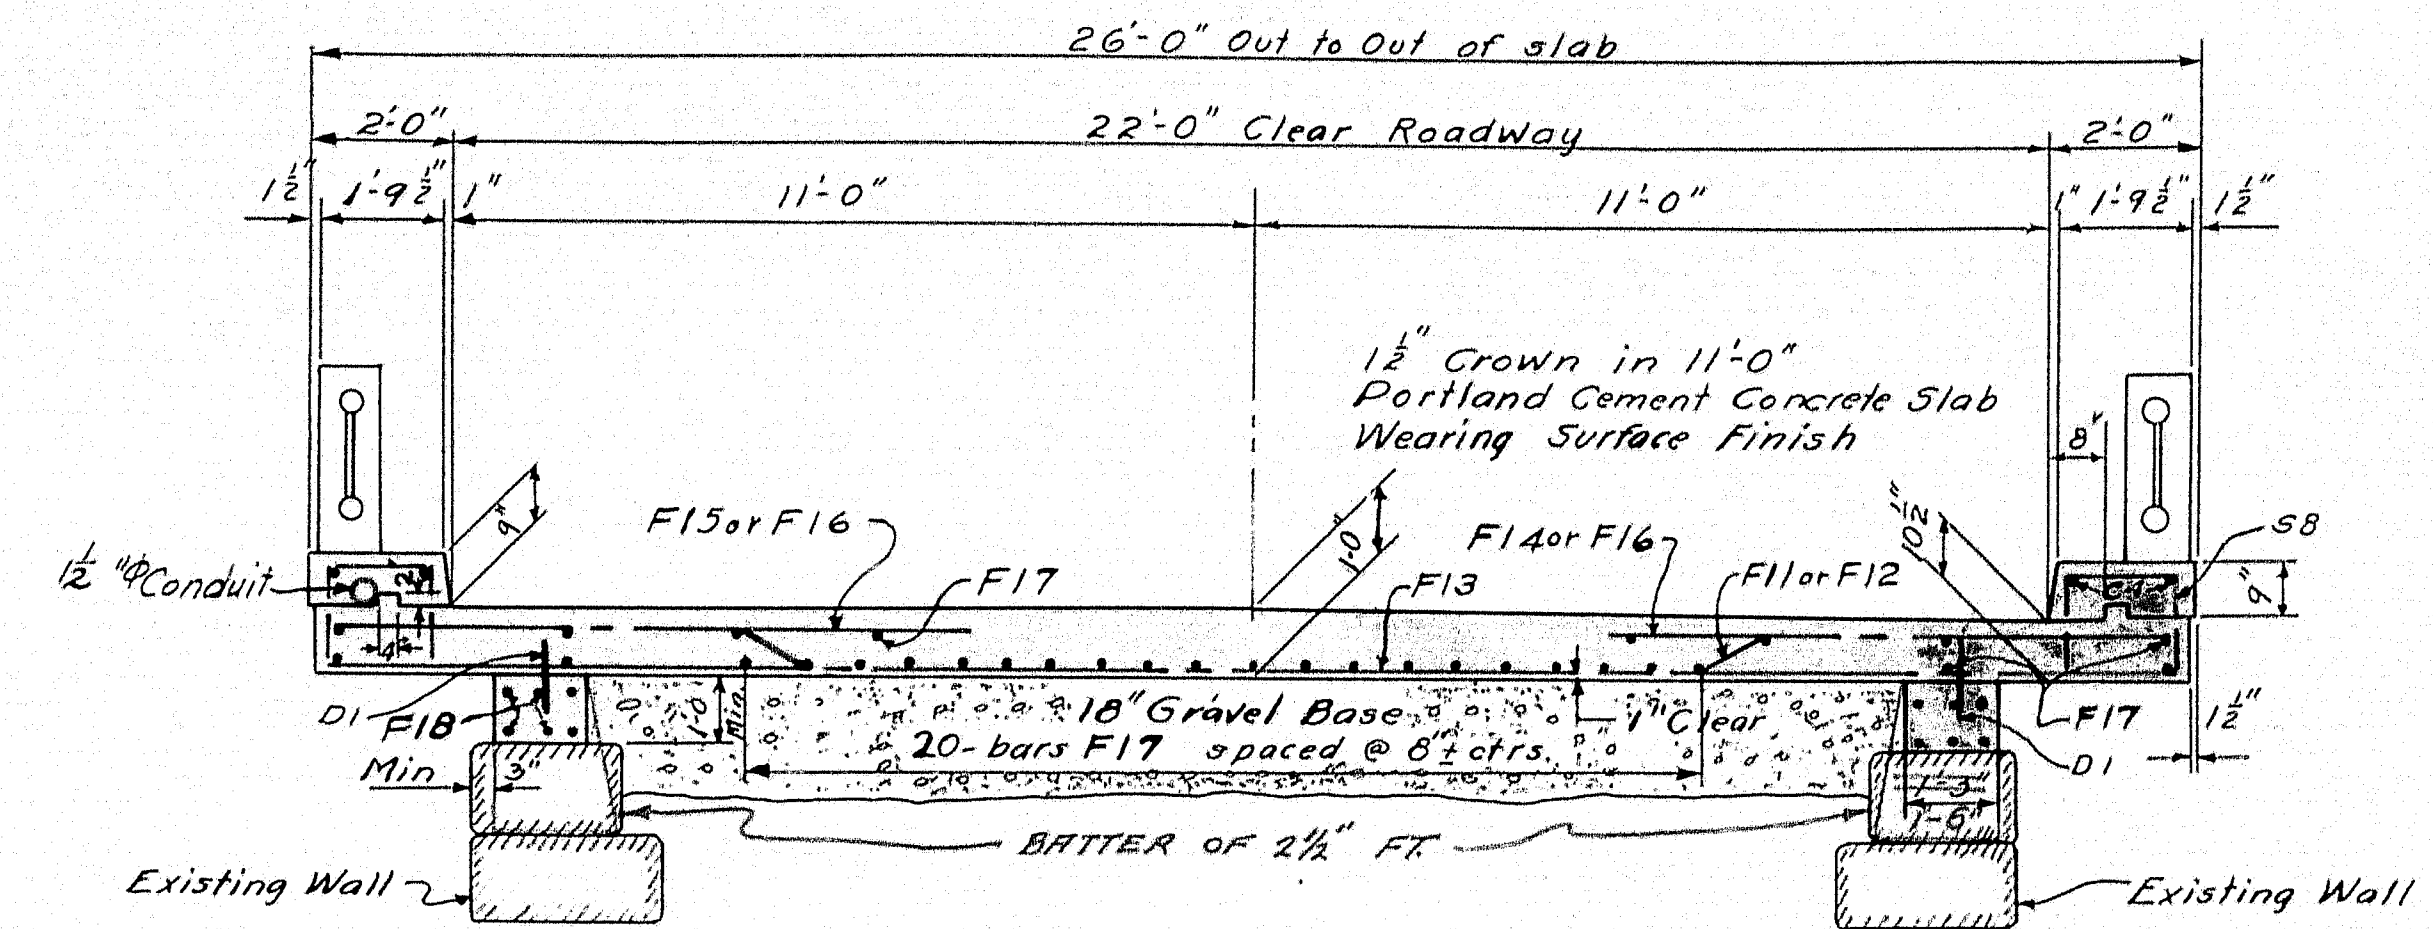 26'-0" Out to Out of slab
2'-0"
22'-0" Clear Roadway
2'-0"
1 1/2"
1'-9 1/2"
1"
11'-0"
11'-0"
1"
1'-9 1/2"
1 1/2"
1 1/2" Crown in 11'-0"
Portland Cement Concrete Slab
Wearing Surface Finish
8"
9"
F15 or F16
1'-0"
F14 or F16
10 1/2"
S8
1 1/2"Φ Conduit
F17
F13
F11 or F12
9"
4"
D1
F18
1'-0"
Min
18" Gravel Base
1" Clear
F17
1 1/2"
20-bars F17 spaced @ 8"± ctrs.
Min
3"
D1
1'-3"
1'-6"
BATTER OF 2 1/2" FT.
Existing Wall
Existing Wall